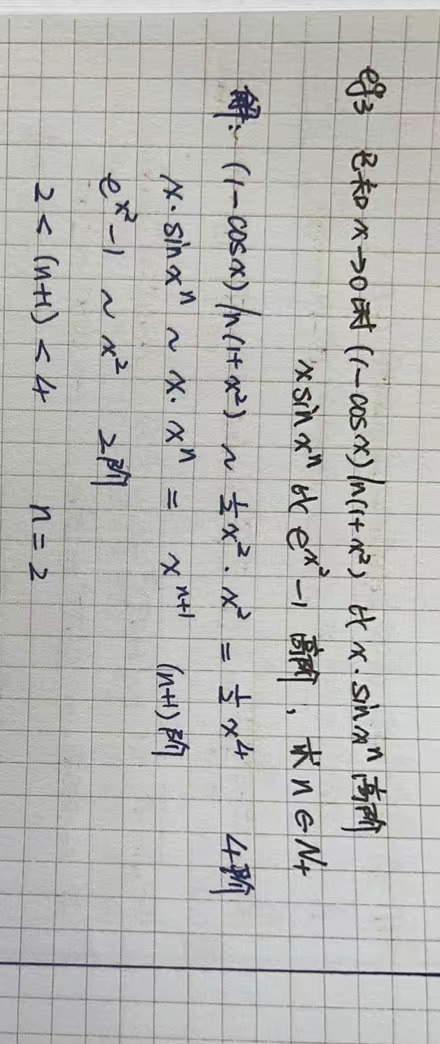 eg3 已知 x→0时 (1-cosx) ln(1+x²) 比 x·sinxⁿ 高阶
x sinxⁿ 比 eˣ²-1 高阶, 求 n∈N₊
解: (1-cosx) ln(1+x²) ~ ½x²·x² = ½x⁴ 4阶
x·sinxⁿ ~ x·xⁿ = xⁿ⁺¹ (n+1)阶
eˣ²-1 ~ x² 2阶
2 < (n+1) < 4 n = 2